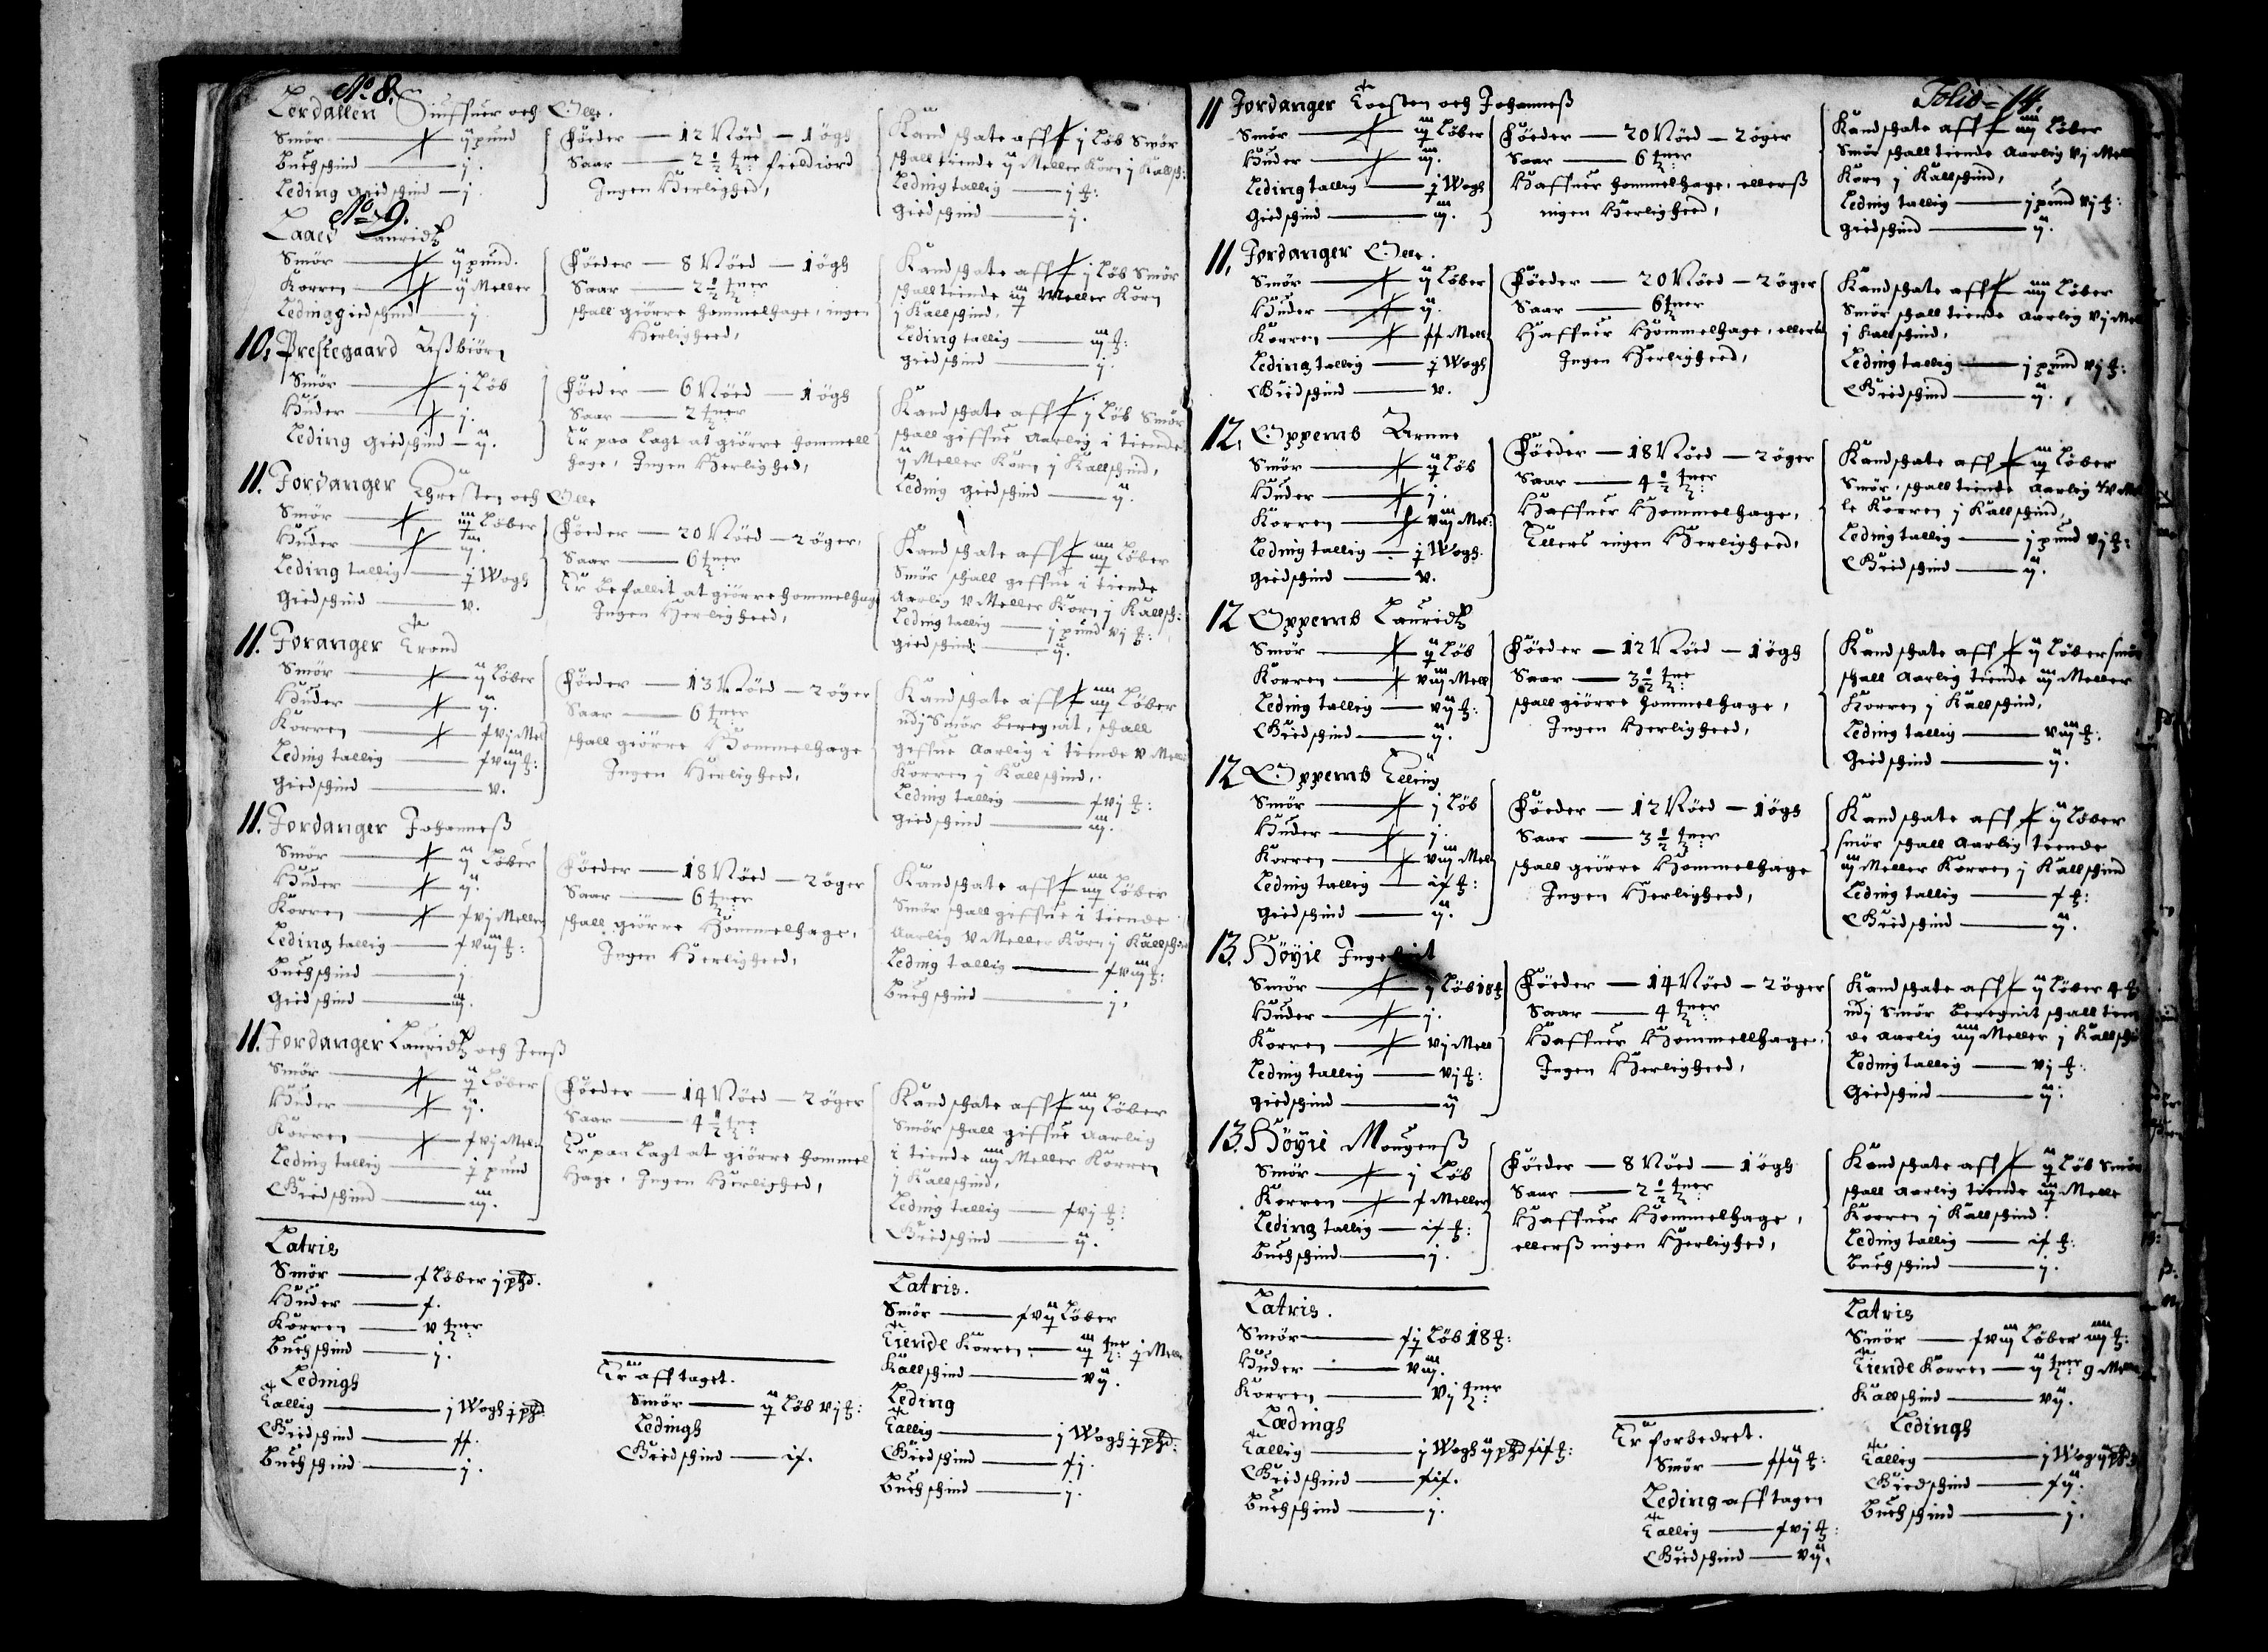 No 8.
Lerdallen Siuffuer och Olle.
Smör — ij pund
Buchschind — j.
Leding giedschind — j
Föeder — 12 Nöed — 1 ögh
Saar — 2 ½ tner fieldiord
Ingen Herlighed,
Kand schate aff j Löb Smör
schall tiende ij Meller Korn j Kallsch:
Leding tallig — j ℔:
Giedschind — j.
No 9.
Laaes Lauridz
Smör — ij pund.
Korren — ij Meller
Leding giedschind — j
Föeder — 8 Nöed — 1 ögh
Saar — 2 ½ tner
schall giörre hommelhage, ingen
Herlighed,
Kand schate aff j Löb Smör
schall tiende iij Meller Korn
j Kallschind,
Leding tallig — iij ℔:
giedschind — j.
10. Prestegaard Assbiörn
Smör — j Löb
Huder — j.
Leding giedschind — ij.
Föeder — 6 Nöed — 1 ögh
Saar — 2 tner
Er paa lagt at giörre hommell
hage, Ingen Herlighed,
Kand schate aff j Löb Smör
schall giffue Aarlig i tiende
ij Meller Korn j Kallschind,
Leding giedschind — ij.
11. Jordanger Chresten och Olle
Smör — iij Löber
Huder — iij.
Leding tallig — j Wogh
Giedschind — v.
Föeder — 20 Nöed — 2 öger,
Saar — 6 tner
Er befallit at giörre hommelhage
Ingen Herlighed,
Kand schate aff iiij Löber
Smör schall geffue i tiende
Aarlig v Meller Korn j Kallsch:
Leding tallig — j pund vj ℔:
giedschind: — ij.
11. Joranger Trond
Smör — ij Löber
Huder — ij.
Korren — xvj Mel
Leding tallig — xviij ℔:
Giedschind — v.
Föeder — 13 Nöed — 2 öger
Saar — 6 tner
schall giörre Hommelhage
Ingen Herlighed,
Kand schate aff iiij Löber
udj Smör beregnit, schall
geffue Aarlig i tiende v Meller
Korren j Kallschind,
Leding tallig — xvj ℔:
giedschind — iij.
11. Jordanger Johanness
Smör — ij Löber
Huder — ij.
Korren — xvj Meller
Leding tallig — xviij ℔:
Buchschind — j
Giedschind — iij.
Föeder — 18 Nöed — 2 öger
Saar — 6 tner
schall giörre Hommelhage,
Ingen Herlighed,
Kand schate aff iiij Löber
Smör schall giffue i tiende
Aarlig v Meller Korn j Kallschind
Leding tallig — xviij ℔:
Buchschind — j.
11. Jordanger Lauridz och Jenss
Smör — ij Löber
Huder — ij.
Korren — xvj Mel:
Leding tallig — j pund
Giedschind — iij.
Föeder — 14 Nöed — 2 öger
Saar — 4 ½ tne:
Er paa lagt at giörre hommel
Hage, Ingen Herlighed,
Kand schate aff iij Löber
Smör schall giffue Aarlig
i tiende iiij Meller Korren
j Kallschind,
Leding tallig — xvj ℔:
Giedschind — ij.
Latris
Smör — x Löber j phd.
Huder — x.
Korren — v tner
Buchschind — j.
Ledingh
Tallig — j Wogh j phd:
Giedschind — xx.
Buchschind — j.
Er aff taget.
Smör — ij Löb vj ℔:
Ledingh
Giedschind — ix.
Latris.
Smör — xvij Löber
Tiende Korren — iij tne: j Melle
Kallschind — vij.
Leding
Tallig — j Wogh j phd:
Giedschind — xj.
Buchschind — j.
Folio = 14.
11 Jordanger Torsten och Johanness
Smör — iij Löber
Huder — iij.
Leding tallig — j Wogh
Giedschind — iij.
Föeder — 20 Nöed — 2 öger
Saar — 6 tner
Haffuer hommelhage, ellerss
ingen Herligheed,
Kand schate aff iiij Löber
Smör schall tiende Aarlig vj Mell
Korn j Kallschind,
Leding tallig — j pund vj ℔:
giedschind — ij.
11. Jordanger Olle.
Smör — ij Löber
Huder — ij.
Korren — xx Mell:
Leding tallig — j Wogh
Giedschind — v.
Föeder — 20 Nöed — 2 öger
Saar — 6 tner
Haffuer Hommelhage, ellers
Ingen Herligheed,
Kand schate aff iiij Löber
Smör schall tiende Aarlig vj Mel
j Kallschind,
Leding tallig — j pund vj ℔:
Giedschind — ij.
12. Oppemb Arnne
Smör — ij Löb
Huder — j.
Korren — viij Mel:
Leding tallig — j Wogh.
giedschind — v.
Föeder — 18 Nöed — 2 öger
Saar — 4 ½ tner
Haffuer Hommelhage,
Ellers ingen Herligheed,
Kand schate aff iij Löber
Smör, schall tiende Aarlig v Mel
le Korren j Kallschind,
Leding tallig — j pund vj ℔:
Giedschind — ij.
12 Oppemb Lauridz
Smör — ij Löb
Korren — viij Mell
Leding tallig — viij ℔:
Giedschind — ij.
Föeder — 12 Nöed — 1 ögh
Saar — 3 ½ tne:
schall giörre hommelhage,
Ingen Herligheed,
Kand schate aff ij Löber smör
schall Aarlig tiende iij Meller
Korren j Kallschind,
Leding tallig — viij ℔:
Giedschind — ij.
12 Oppemb Elling
Smör — j Löb
Huder — j.
Korren — viij Mel
Leding tallig — ix ℔:
Giedschind — ij.
Föeder — 12 Nöed — 1 ögh
Saar — 3 ½ tner
schall giörre Hommelhage
Ingen Herligheed,
Kand schate aff ij Löber
smör schall Aarlig tiende
iij Meller Korren j Kallschind
Leding tallig — x ℔:
Giedschind — ij.
13. Höyie
Smör — j Löb 18 ℔
Huder — j.
Korren — vj Mell
Leding tallig — vj ℔:
giedschind — ij
Föeder — 14 Nöed — 2 öger
Saar — 4 tner
Haffuer Hommellhage,
Ingen Herligheed,
Kand schate aff ij Löber 4 ℔
udj Smör beregnit schall tien
de Aarlig iiij Meller j Kallschi
Leding tallig — vj ℔:
Giedschind — ij:
13. Höyie Mougenss
Smör — j Löb
Korren — x Meller
Leding tallig — ix ℔:
Buchschind — j.
Föeder — 8 Nöed — 1 ögh
Saar — 2 ½ tner
Haffuer Hommelhage,
ellerss ingen Herlighed,
Kand schate aff ij Löb Smör
schall Aarlig tiende iij Melle
Korren j Kallschind.
Leding tallig — ix ℔:
Buchschind — j.
Latris.
Smör — xj Löb 18 ℔:
Huder — viij.
Korren — vj tner
Lædingh
Tallig — j Wogh ij phd xix ℔:
Giedschind — xix.
Buchschind — j.
Er forbedret.
Smör — xxij ℔:
Leding aff tagen
Tallig — xvj ℔:
Giedschind — vij.
Latris
Smör — xviij Löber iiij ℔:
Tiende Korren — ij tner 9 Mell
Kallschind — vij.
Ledingh
Tallig — j Wog ij phd
Giedschind — xij.
Buchschind — j.